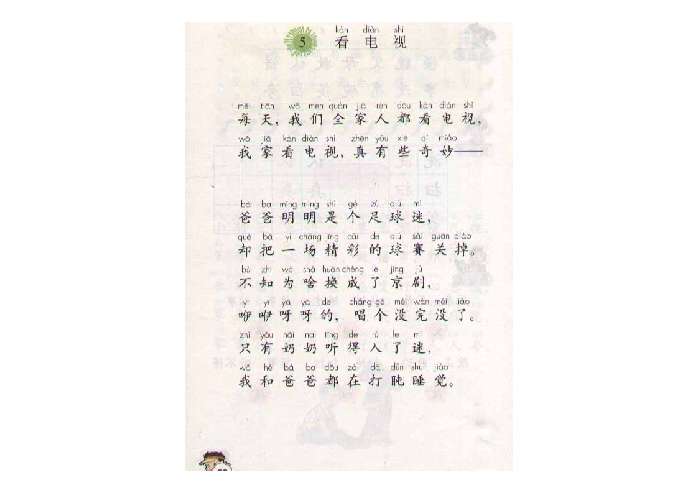 kàn diàn shì
5 看电视
měi tiān wǒ men quán jiā rén dōu kàn diàn shì
每天，我们全家人都看电视，
wǒ jiā kàn diàn shì zhēn yǒu xiē qí miào
我家看电视，真有些奇妙——
bà ba míng míng shì gè zú qiú mí
爸爸明明是个足球迷，
què bǎ yì chǎng jīng cǎi de qiú sài guān diào
却把一场精彩的球赛关掉。
bù zhī wèi shá huàn chéng le jīng jù
不知为啥换成了京剧，
yī yī yā yā de chàng gè méi wán méi liǎo
咿咿呀呀的，唱个没完没了。
zhǐ yǒu nǎi nai tīng de rù le mí
只有奶奶听得入了迷，
wǒ hé bà ba dōu zài dǎ dǔn shuì jiào
我和爸爸都在打盹睡觉。